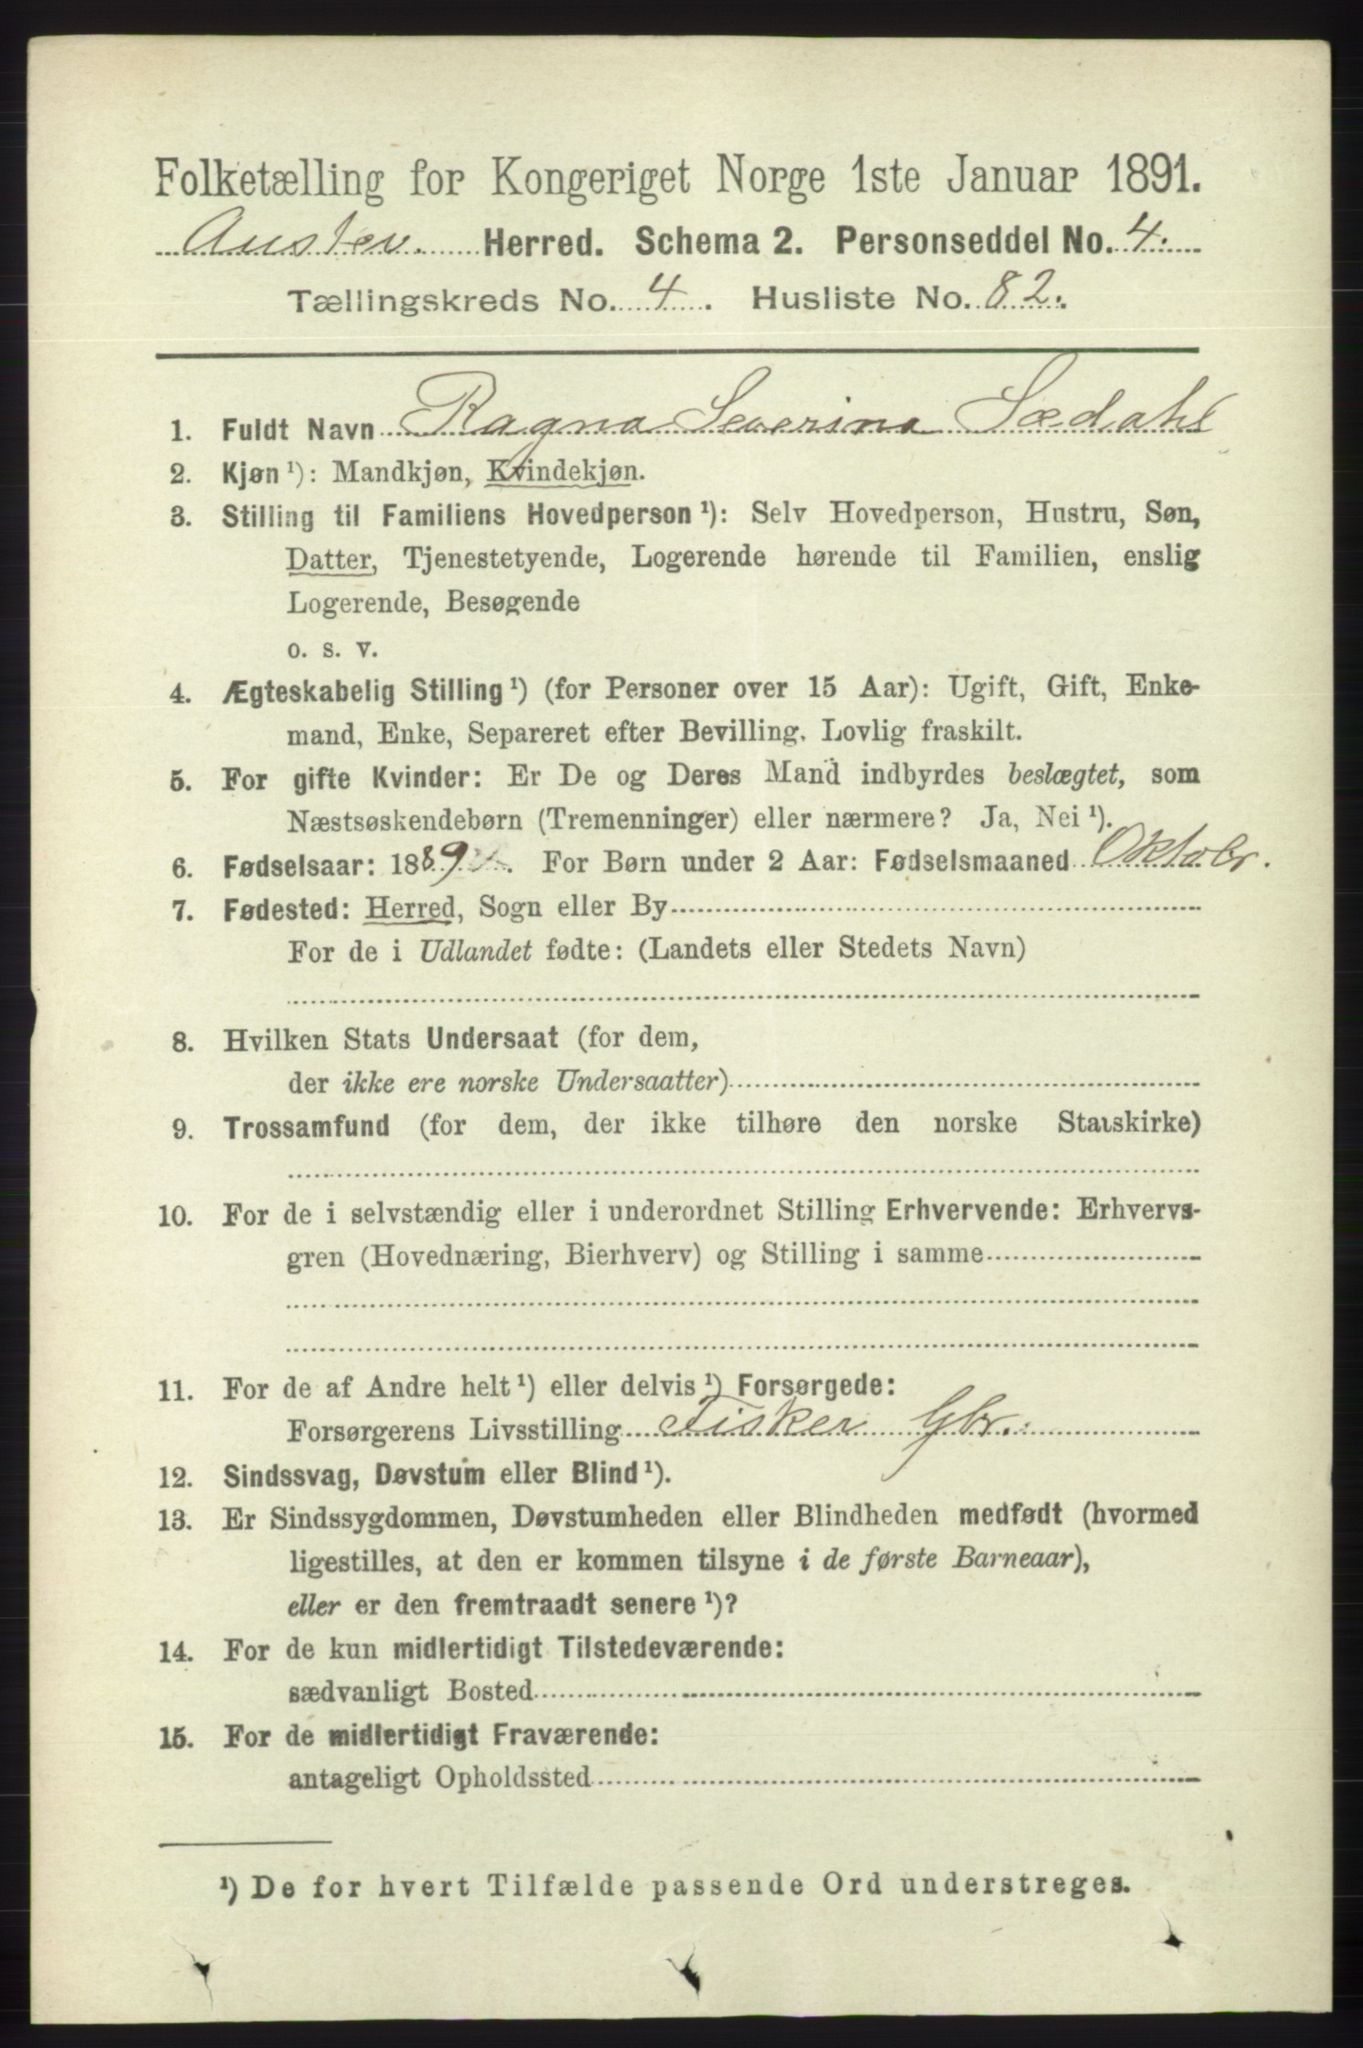 Folketælling for Kongeriget Norge 1ste Januar 1891.
Austev. Herred. Schema 2. Personseddel No. 4.
Tællingskreds No. 4. Husliste No. 82.
1. Fuldt Navn Ragna Severina Sædahl
2. Kjøn ¹): Mandkjøn, Kvindekjøn.
3. Stilling til Familiens Hovedperson ¹): Selv Hovedperson, Hustru, Søn,
Datter, Tjenestetyende, Logerende hørende til Familien, enslig
Logerende, Besøgende
o. s. v.
4. Ægteskabelig Stilling ¹) (for Personer over 15 Aar): Ugift, Gift, Enke-
mand, Enke, Separeret efter Bevilling. Lovlig fraskilt.
5. For gifte Kvinder: Er De og Deres Mand indbyrdes beslægtet, som
Næstsøskendebørn (Tremenninger) eller nærmere? Ja, Nei ¹).
6. Fødselsaar: 1889. For Børn under 2 Aar: Fødselsmaaned Oktobr.
7. Fødested: Herred, Sogn eller By
For de i Udlandet fødte: (Landets eller Stedets Navn)
8. Hvilken Stats Undersaat (for dem,
der ikke ere norske Undersaatter)
9. Trossamfund (for dem, der ikke tilhøre den norske Statskirke)
10. For de i selvstændig eller i underordnet Stilling Erhvervende: Erhvervs-
gren (Hovednæring, Bierhverv) og Stilling i samme
11. For de af Andre helt ¹) eller delvis ¹) Forsørgede:
Forsørgerens Livsstilling Fisker Gbr.
12. Sindssvag, Døvstum eller Blind ¹).
13. Er Sindssygdommen, Døvstumheden eller Blindheden medfødt (hvormed
ligestilles, at den er kommen tilsyne i de første Barneaar),
eller er den fremtraadt senere ¹)?
14. For de kun midlertidigt Tilstedeværende:
sædvanligt Bosted
15. For de midlertidigt Fraværende:
antageligt Opholdssted
¹) De for hvert Tilfælde passende Ord understreges.